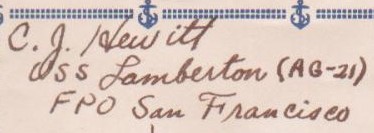 C. J. Hewitt
USS Lamberton (AG-21)
FPO San Francisco